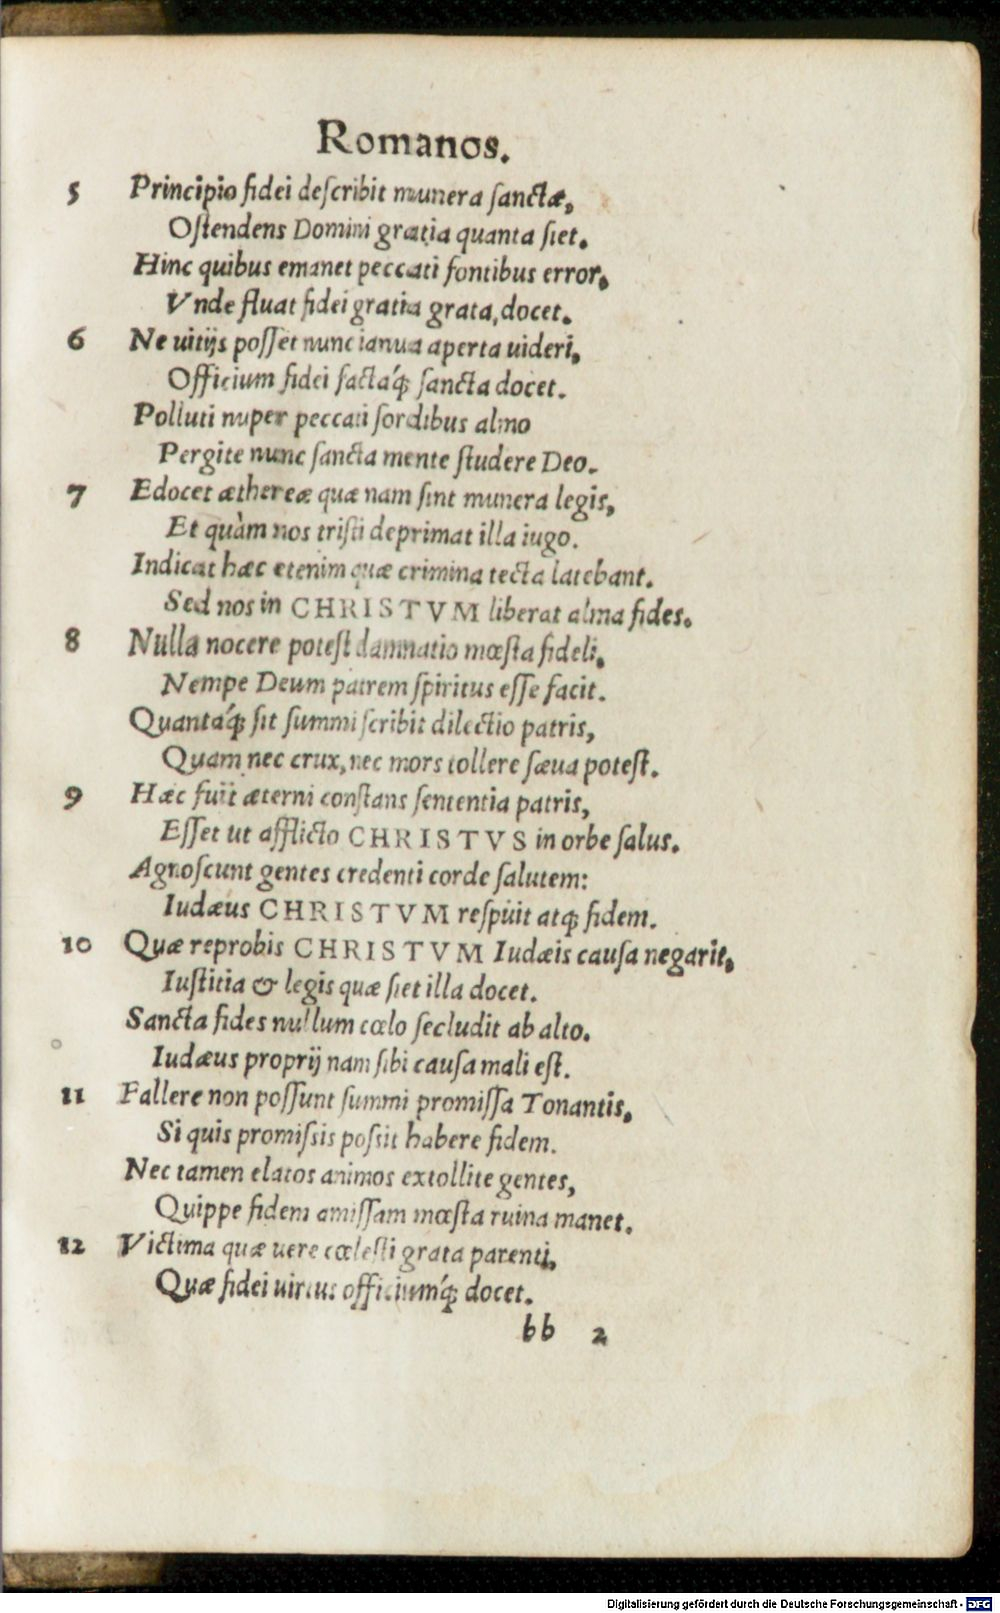 Romanos.
5 Principio fidei deſcribit munera ſanctæ,
Oſtendens Domini gratia quanta ſiet.
Hinc quibus emanet peccati fontibus error,
Vnde fluat fidei gratia grata, docet.
6 Ne uitijs poſſet nunc ianua aperta uideri,
Officium fidei factaq́; ſancta docet.
Polluti nuper peccati ſordibus almo
Pergite nunc ſancta mente ſtudere Deo.
7 Edocet æthereæ quæ nam ſint munera legis,
Et quàm nos triſti deprimat illa iugo.
Indicat hæc etenim quæ crimina tecta latebant.
Sed nos in CHRISTVM liberat alma fides.
8 Nulla nocere poteſt damnatio mœſta fideli,
Nempe Deum patrem ſpiritus eſſe facit.
Quantaq́; ſit ſummi ſcribit dilectio patris,
Quam nec crux, nec mors tollere ſæua poteſt.
9 Hæc fuit æterni conſtans ſententia patris,
Eſſet ut afflicto CHRISTVS in orbe ſalus.
Agnoſcunt gentes credenti corde ſalutem:
Iudæus CHRISTVM reſpuit atq; fidem.
10 Quæ reprobis CHRISTVM Iudæis cauſa negarit,
Iuſtitia & legis quæ ſiet illa docet.
Sancta fides nullum cœlo ſecludit ab alto.
Iudæus proprij nam ſibi cauſa mali eſt.
11 Fallere non poſſunt ſummi promiſſa Tonantis,
Si quis promiſsis poſsit habere fidem.
Nec tamen elatos animos extollite gentes,
Quippe fidem amiſſam mœſta ruina manet.
12 Victima quæ uere cœleſti grata parenti,
Quæ fidei uirtus officiumq́; docet.
bb 2
Digitalisierung gefördert durch die Deutsche Forschungsgemeinschaft - DFG